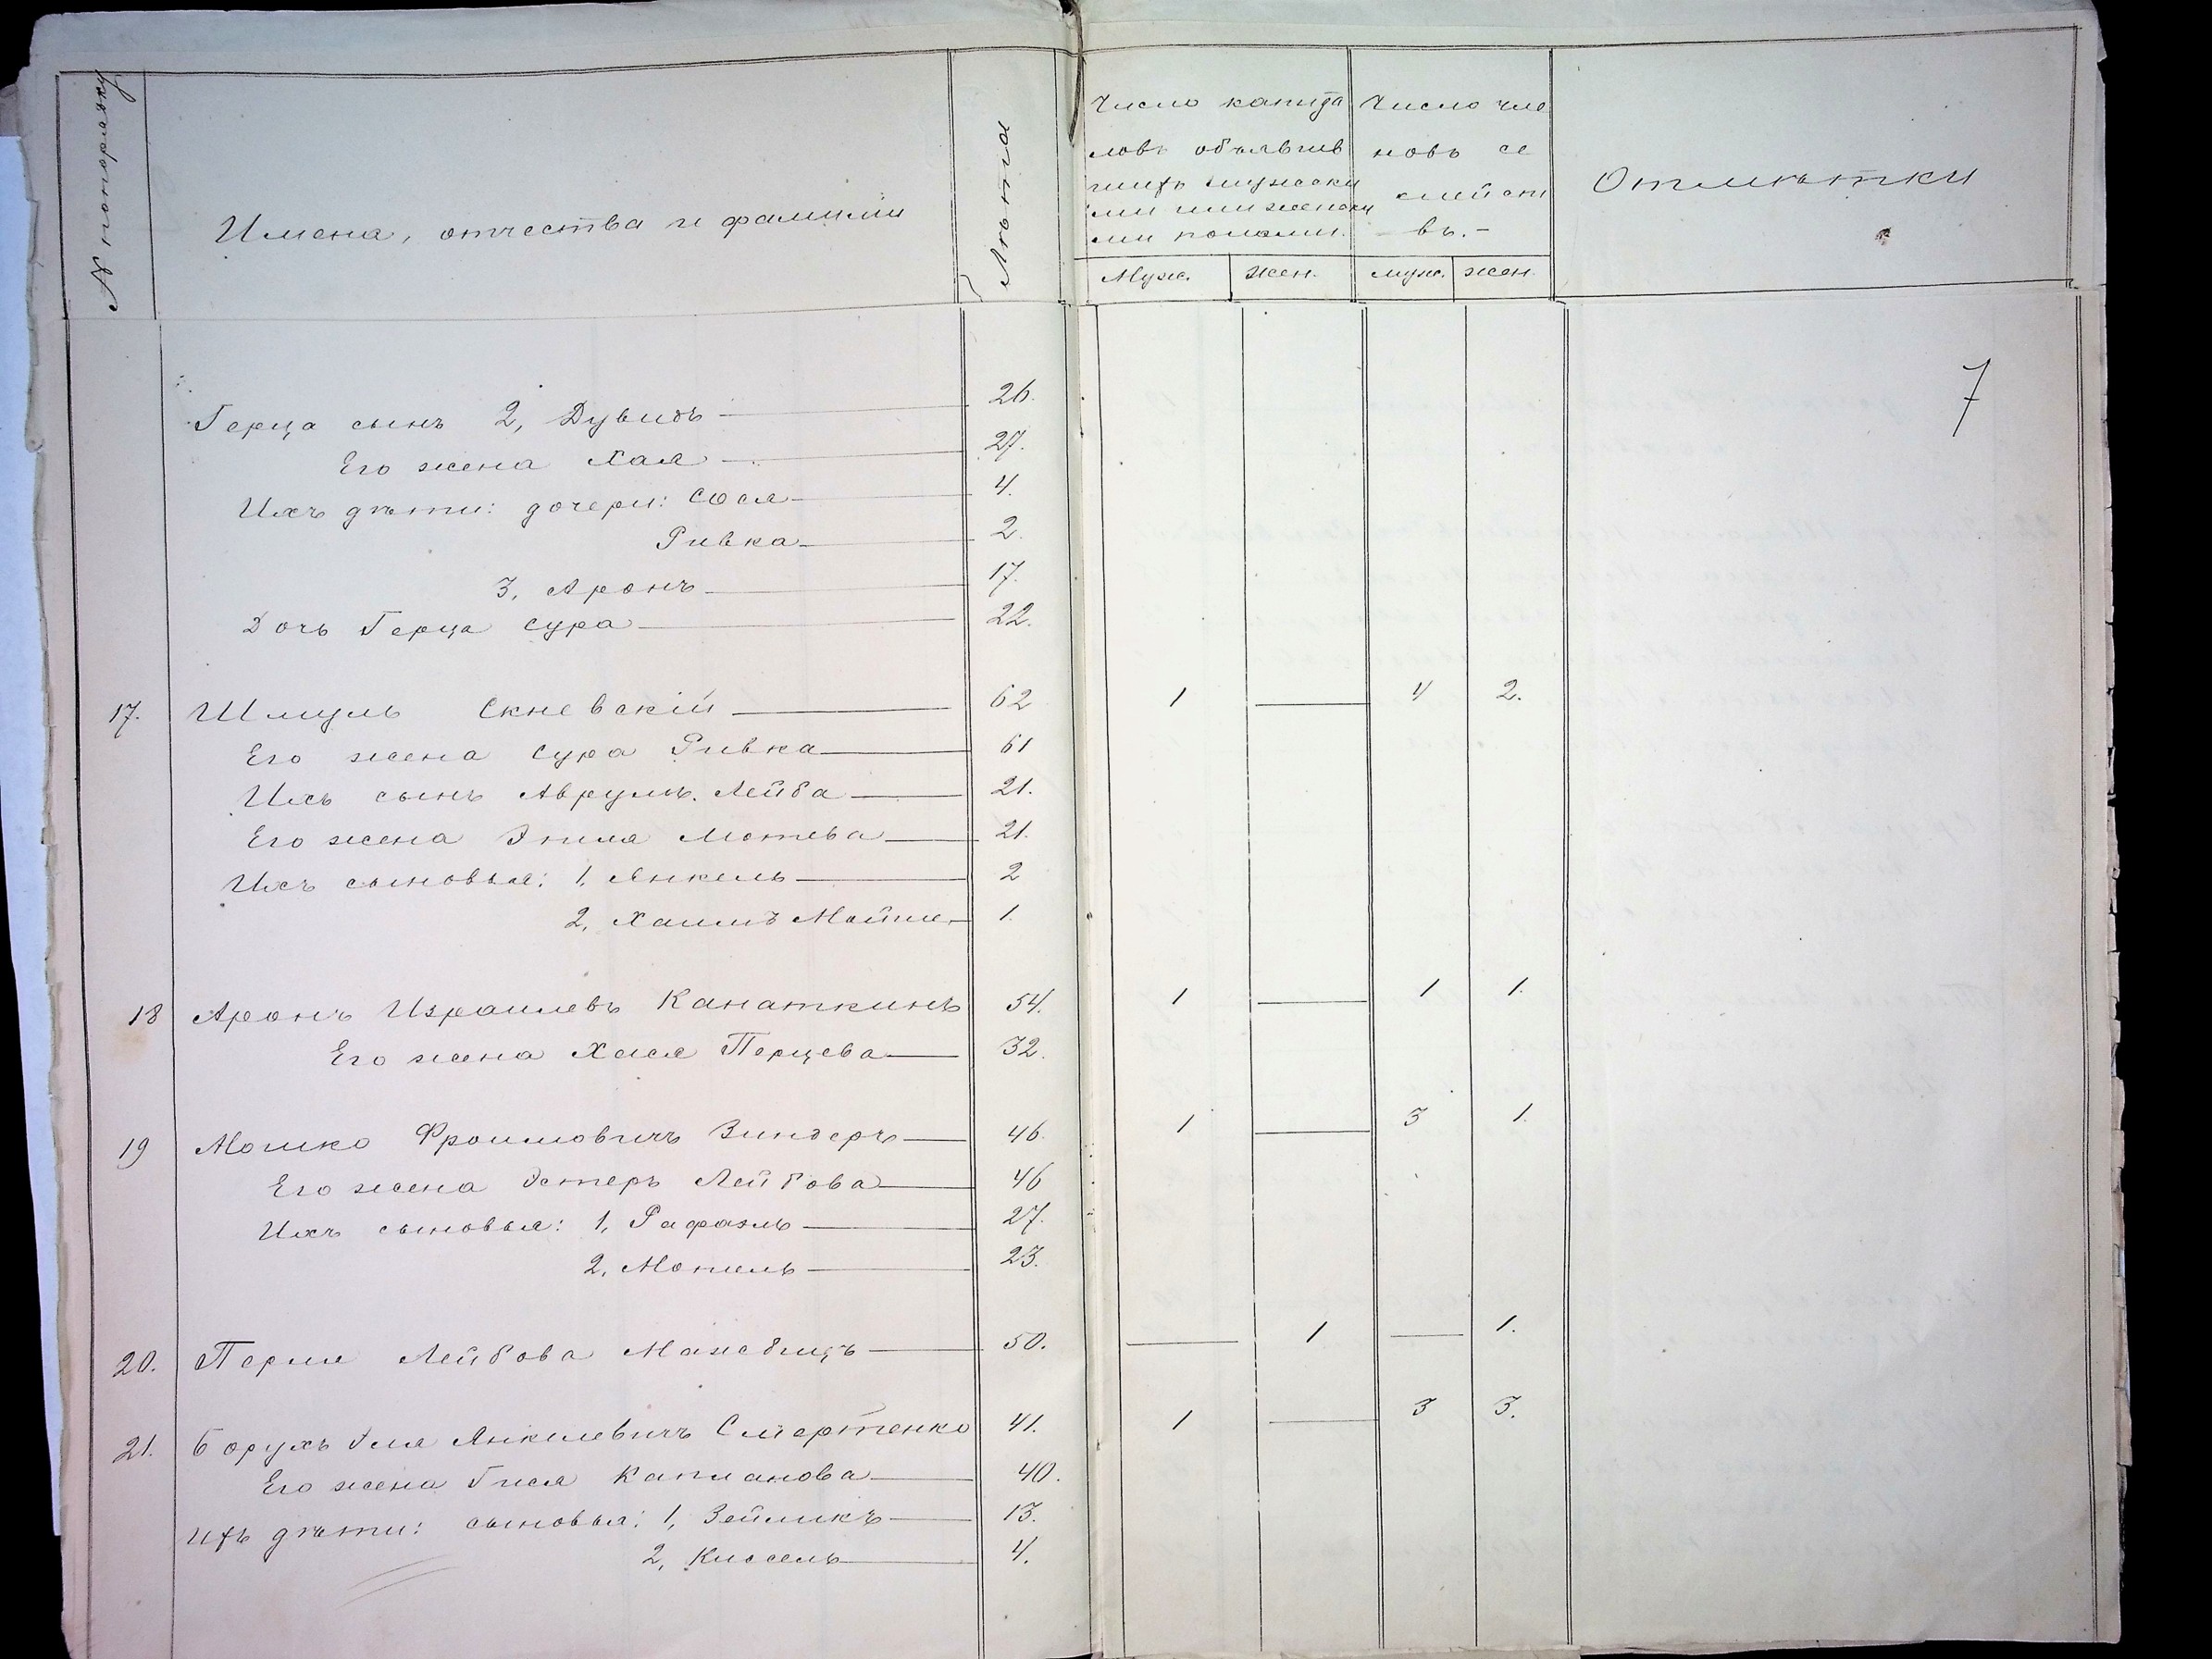 № попорядку
Имена, отчества и фамилии
Лѣта
Число капита
ловъ объявив
шихъ мужски
ми или женски
ми полами.
Число чле
новъ се
мейст
въ.-
Отмѣтки
Муж. жен. муж. жен.
7
Герца сынъ 2, Дувидъ 26.
Его жена Хая 27.
Ихъ дѣти: дочери: Сося 4.
Ривка 2
3, Аронъ 17.
Дочь Герца Сура 22.
17. Шмуль Скневскій 62 1 — 4 2.
Его жена Сура Ривка 61
Ихъ сынъ Аврумъ. Лейба 21.
Его жена Этля Мотева 21.
Ихъ сыновья: 1, Янкель 2
2, Хаимъ Мойше 1.
18 Аронъ Израилевъ Канаткинъ 54. 1 — 1 1.
Его жена Хася Перцева 32.
19 Мошко Фроимовичъ Виндеръ 46. 1 — 3 1.
Его жена Эстеръ Лейбова 46
Ихъ сыновья: 1, Рафаэль 27.
2, Мотель 23.
20. Перля Лейбова 50. — 1 — 1.
21. Борухъ Эля Янкелевичъ Смертенко 41. 1 — 3 3.
Его жена Гися Капланова 40.
Ихъ дѣти: сыновья: 1, Зейликъ 13.
2, Киссель 4.